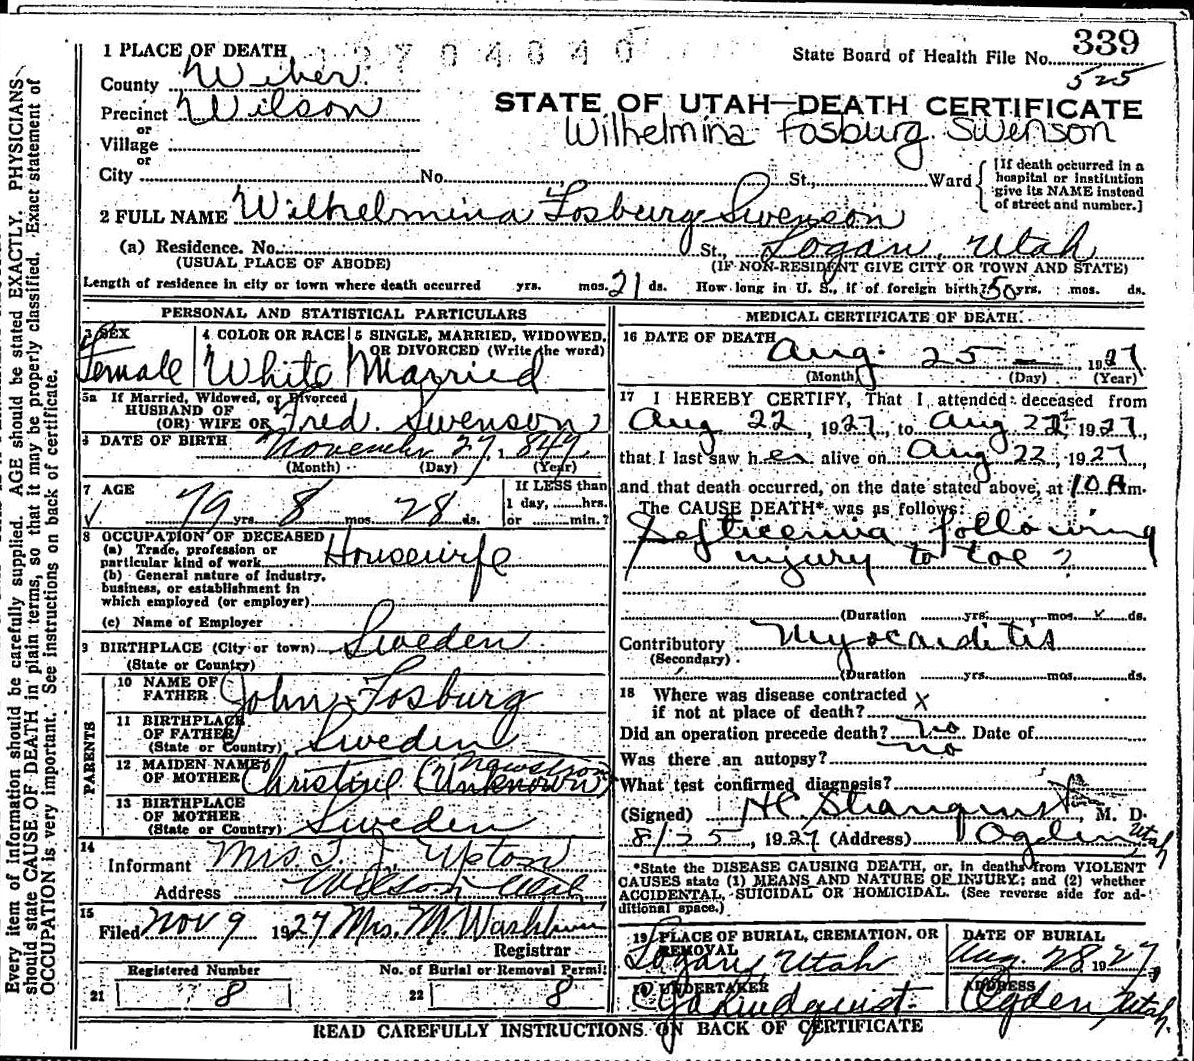 1 PLACE OF DEATH
2704040
State Board of Health File No. 339
County Weber
525
Precinct Wilson
STATE OF UTAH—DEATH CERTIFICATE
or
Wilhelmina Fosburg Swenson
Village
or
City No. St., Ward
[If death occurred in a hospital or institution give its NAME instead of street and number.]
2 FULL NAME Wilhelmina Fosburg Swenson
(a) Residence. No. St., Logan, Utah
(USUAL PLACE OF ABODE) (IF NON-RESIDENT GIVE CITY OR TOWN AND STATE)
Length of residence in city or town where death occurred yrs. mos. 21 ds. How long in U. S., if of foreign birth? 50 yrs. mos. ds.
PERSONAL AND STATISTICAL PARTICULARS
3 SEX Female
4 COLOR OR RACE White
5 SINGLE, MARRIED, WIDOWED, OR DIVORCED (Write the word) Married
5a If Married, Widowed, or Divorced
HUSBAND OF
(OR) WIFE OF Fred Swenson
6 DATE OF BIRTH November 27, 1847
(Month) (Day) (Year)
7 AGE 79 yrs. 8 mos. 28 ds.
If LESS than
1 day, hrs.
or min.?
8 OCCUPATION OF DECEASED
(a) Trade, profession or
particular kind of work Housewife
(b) General nature of industry,
business, or establishment in
which employed (or employer)
(c) Name of Employer
9 BIRTHPLACE (City or town) Sweden
(State or Country)
PARENTS
10 NAME OF
FATHER John Fosburg
11 BIRTHPLACE
OF FATHER
(State or Country) Sweden
12 MAIDEN NAME
OF MOTHER Christine (Unknown)
13 BIRTHPLACE
OF MOTHER
(State or Country) Sweden
14
Informant Mrs. T. J. Upton
Address Wilson Utah
15
Filed Nov 9 1927 Mrs. M. Washburn
Registrar
Registered Number No. of Burial or Removal Permit
21 8 22 8
MEDICAL CERTIFICATE OF DEATH.
16 DATE OF DEATH
Aug. 25 — 1927
(Month) (Day) (Year)
17 I HEREBY CERTIFY, That I attended deceased from
Aug 22, 1927, to Aug 22, 1927,
that I last saw her alive on Aug 22, 1927,
and that death occurred, on the date stated above, at 10 Am.
The CAUSE DEATH* was as follows:
Septicemia following
injury to toe?
(Duration yrs. mos. x ds.
Contributory Myocarditis
(Secondary)
(Duration yrs. mos. ds.
18 Where was disease contracted x
if not at place of death?
Did an operation precede death? no Date of
Was there an autopsy? no
What test confirmed diagnosis?
(Signed) H.C. Stranquist, M. D.
8/25, 1927 (Address) Ogden Utah
*State the DISEASE CAUSING DEATH, or, in deaths from VIOLENT
CAUSES state (1) MEANS AND NATURE OF INJURY; and (2) whether
ACCIDENTAL, SUICIDAL OR HOMICIDAL. (See reverse side for ad-
ditional space.)
19 PLACE OF BURIAL, CREMATION, OR
REMOVAL
Logan, Utah
DATE OF BURIAL
Aug. 28 1927
UNDERTAKER
Lindquist.
ADDRESS
Ogden, Utah.
READ CAREFULLY INSTRUCTIONS ON BACK OF CERTIFICATE
Every item of information should be carefully supplied. AGE should be stated EXACTLY. PHYSICIANS
should state CAUSE OF DEATH in plain terms, so that it may be properly classified. Exact statement of
OCCUPATION is very important. See instructions on back of certificate.